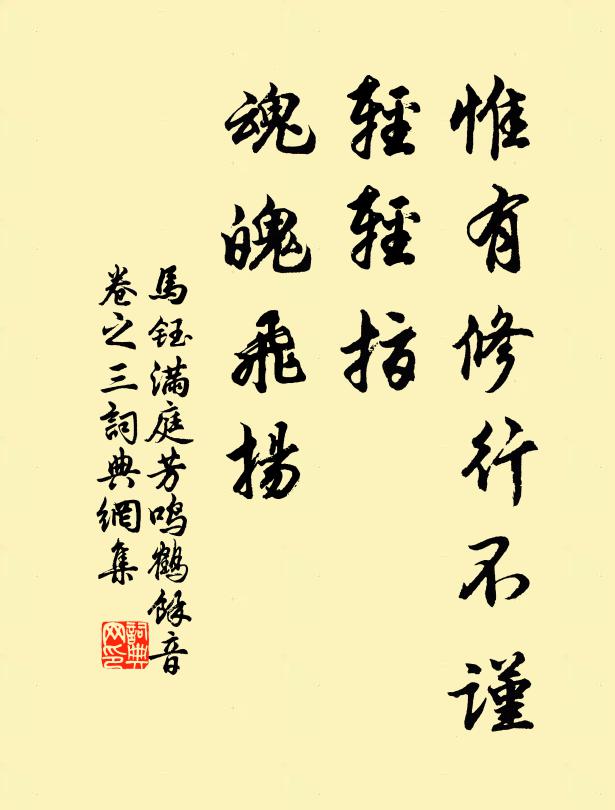 惟有修行不謹
輕輕指
魂魄飛揚
馬鈺滿庭芳鳴鶴餘音
卷之三詞典網集
詞典网印